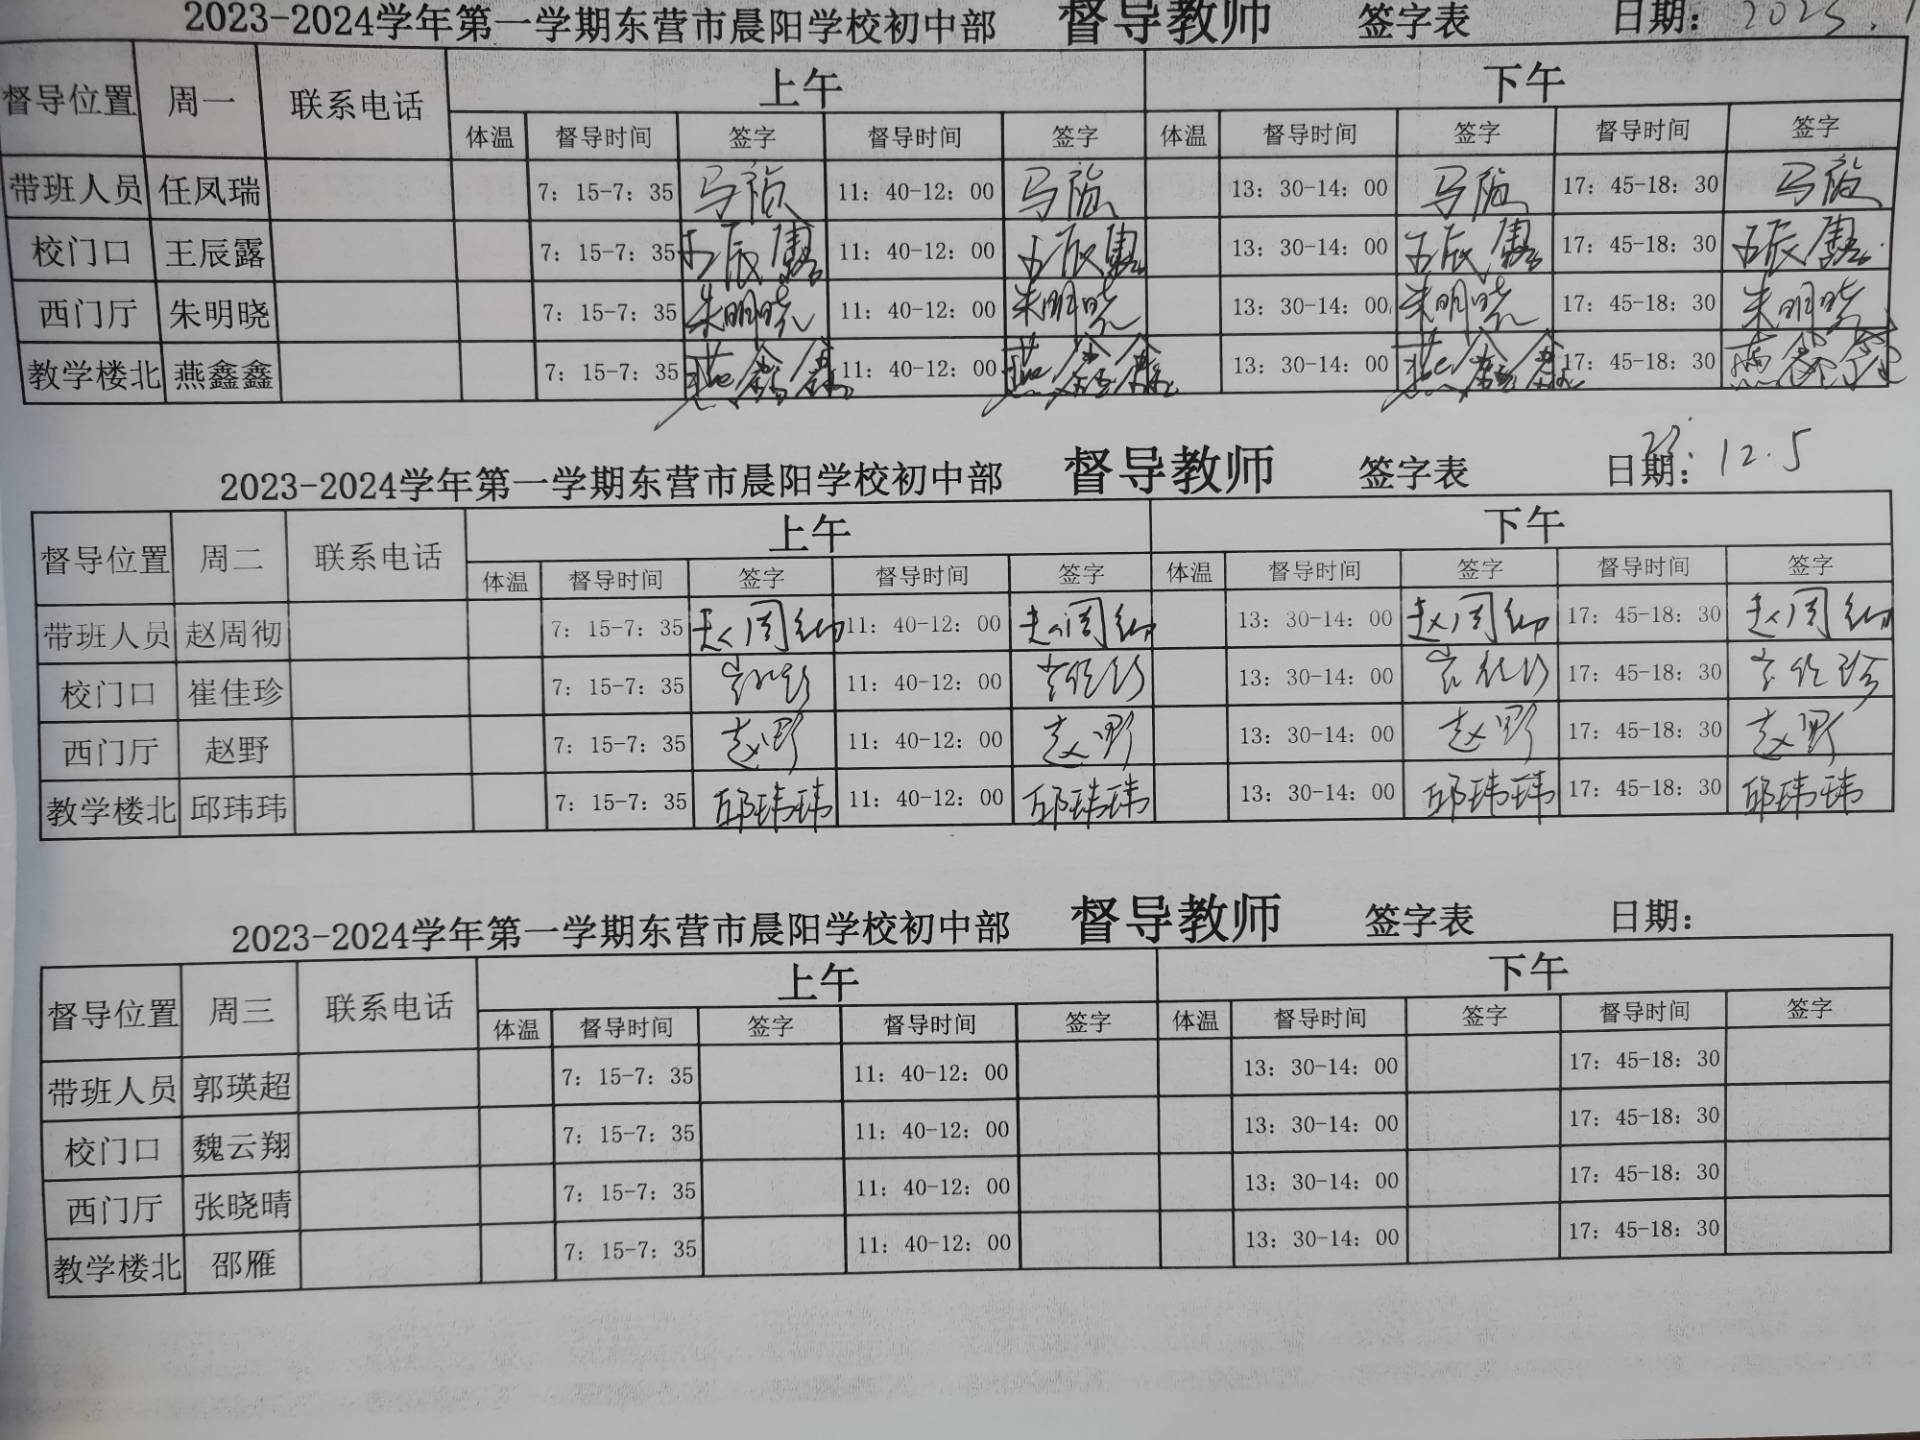 2023-2024学年第一学期东营市晨阳学校初中部 督导教师 签字表 日期: 2023.1
督导位置 周一 联系电话 上午 下午
体温 督导时间 签字 督导时间 签字 体温 督导时间 签字 督导时间 签字
带班人员 任凤瑞 7: 15-7: 35 马旋 11: 40-12: 00 马旋 13: 30-14: 00 马旋 17: 45-18: 30 马旋
校门口 王辰露 7: 15-7: 35 王辰露 11: 40-12: 00 王辰露 13: 30-14: 00 王辰露 17: 45-18: 30 王辰露
西门厅 朱明晓 7: 15-7: 35 朱明晓 11: 40-12: 00 朱明晓 13: 30-14: 00 朱明晓 17: 45-18: 30 朱明晓
教学楼北 燕鑫鑫 7: 15-7: 35 燕鑫鑫 11: 40-12: 00 燕鑫鑫 13: 30-14: 00 燕鑫鑫 17: 45-18: 30 燕鑫鑫
2023-2024学年第一学期东营市晨阳学校初中部 督导教师 签字表 日期: 23.12.5
督导位置 周二 联系电话 上午 下午
体温 督导时间 签字 督导时间 签字 体温 督导时间 签字 督导时间 签字
带班人员 赵周彻 7: 15-7: 35 赵周彻 11: 40-12: 00 赵周彻 13: 30-14: 00 赵周彻 17: 45-18: 30 赵周彻
校门口 崔佳珍 7: 15-7: 35 崔佳珍 11: 40-12: 00 崔佳珍 13: 30-14: 00 崔佳珍 17: 45-18: 30 崔佳珍
西门厅 赵野 7: 15-7: 35 赵野 11: 40-12: 00 赵野 13: 30-14: 00 赵野 17: 45-18: 30 赵野
教学楼北 邱玮玮 7: 15-7: 35 邱玮玮 11: 40-12: 00 邱玮玮 13: 30-14: 00 邱玮玮 17: 45-18: 30 邱玮玮
2023-2024学年第一学期东营市晨阳学校初中部 督导教师 签字表 日期:
督导位置 周三 联系电话 上午 下午
体温 督导时间 签字 督导时间 签字 体温 督导时间 签字 督导时间 签字
带班人员 郭瑛超 7: 15-7: 35 11: 40-12: 00 13: 30-14: 00 17: 45-18: 30
校门口 魏云翔 7: 15-7: 35 11: 40-12: 00 13: 30-14: 00 17: 45-18: 30
西门厅 张晓晴 7: 15-7: 35 11: 40-12: 00 13: 30-14: 00 17: 45-18: 30
教学楼北 邵雁 7: 15-7: 35 11: 40-12: 00 13: 30-14: 00 17: 45-18: 30